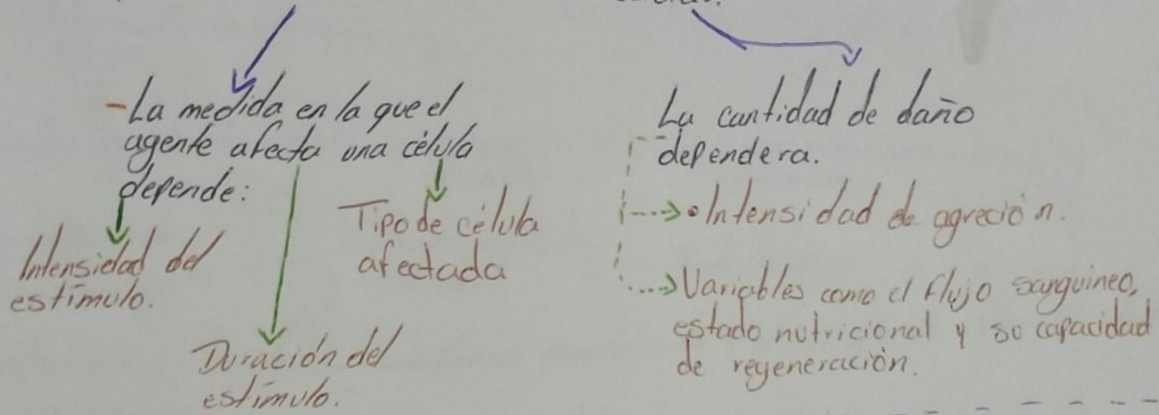 -La medida en la que el
agente afecta una célula
depende:
Intensidad del
estímulo.
Duración del
estímulo.
Tipo de célula
afectada
La cantidad de daño
dependera.
•Intensidad de agreción.
Variables como el flujo sanguineo,
estado nutricional y su capacidad
de regeneración.